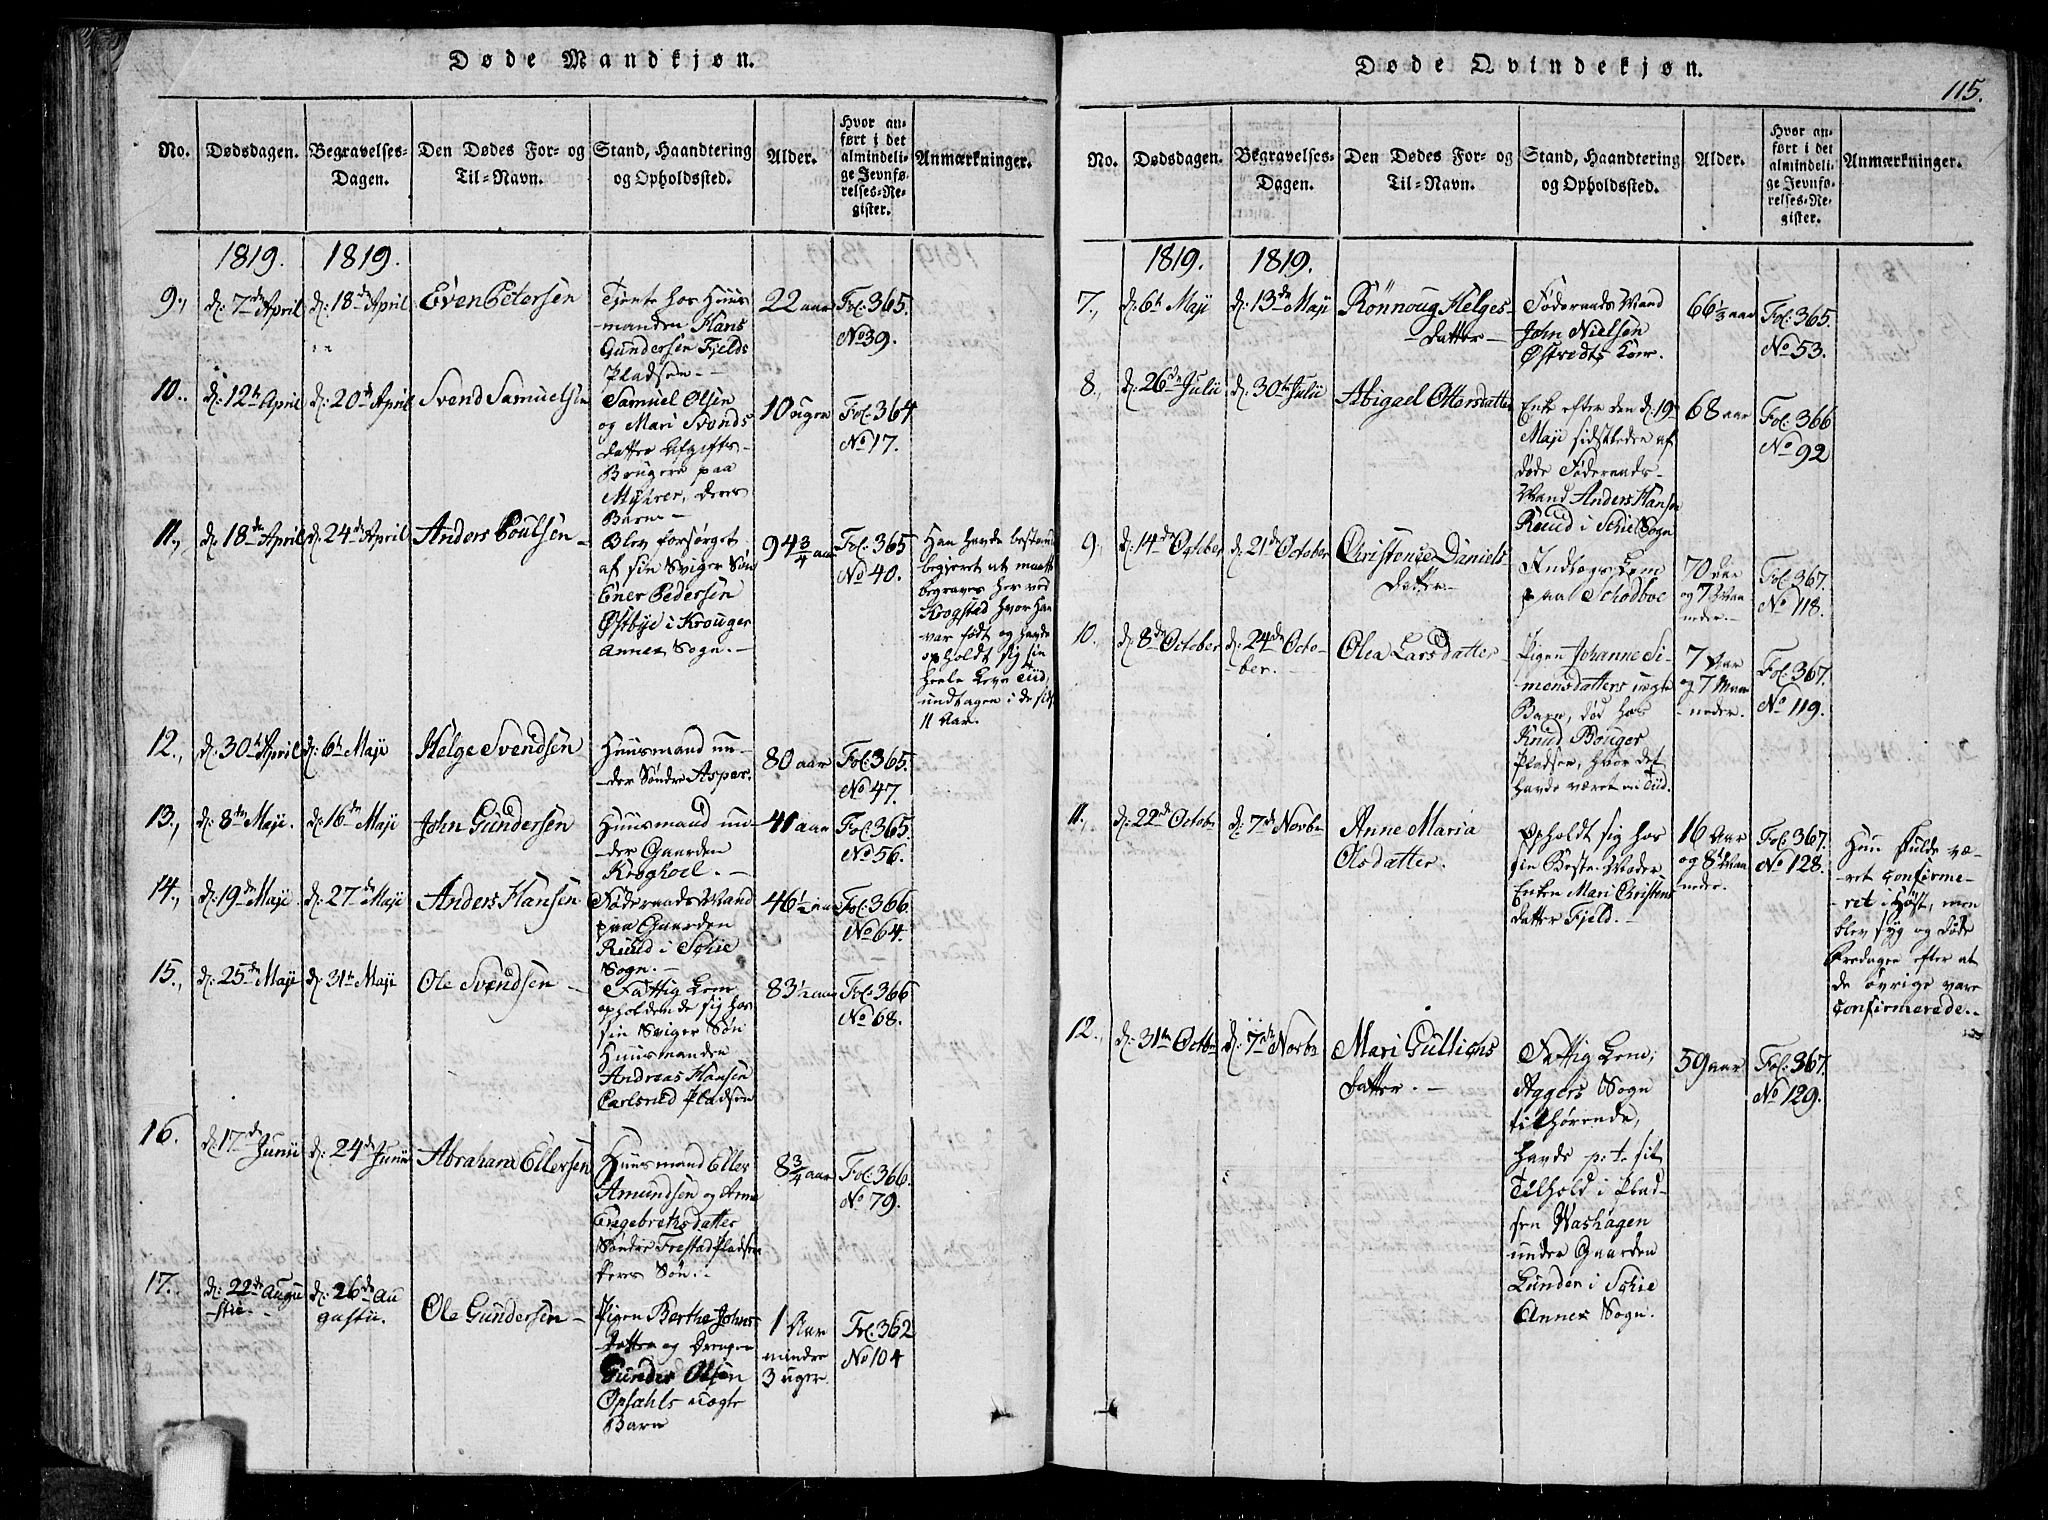 Døde Mandkjøn.
No.
Dødsdagen.
Begravelses-
Dagen.
Den Dødes For- og
Til-Navn.
Stand, Haandtering
og Opholdssted.
Alder.
Hvor an-
ført i det
almindeli-
ge Jevnfø-
relses-Re-
gister.
Anmærkninger.
1819. 1819.
9., d: 7de April d: 18de April Even Petersen
Tjente hos Huus
-manden Hans
Gundersen Fjelds
Pladsen --
22 aar
Fol: 365.
No 39.
10.. d: 12te April d: 20de April Svend Samuelsen
Samuel Olsen
og Mari Svends
datter Afgifts-
Brugere paa
Myhrer, deres
Barn -
10 ugen
Fol: 364
No 17.
11., d: 18de April d: 24de April Anders Poulsen -
Blev forsørget
af sin Sviger Søn
Ener Pedersen
Østbye i Krouger
Annex Sogn. -
94 3/4 aar
Fol: 365
No 40.
Han havde bestemt
begjeret at maatte
begraves her ved
Krogstad hvor han
var født og havde
opholdt sig sin
heele Leve Tiid,
undtagen i de sidste
11 Aar.
12., d: 30te April d: 6te Maji Helge Svendsen
Huusmand un-
-der Søndre Asper.
80 aar
Fol: 365.
No 47.
13., d: 8te Maji. d: 16de Maji John Gundersen
Huusmand un-
-der Gaarden
Kroghoel. -
41 aar
Fol: 365.
No 56.
14., d: 19de Maji d: 27de Maji Anders Hansen
Føderaads Mand
paa Gaarden
Ruud i Schie
Sogn. -
46 1/2 aar
Fol: 366.
No 64.
15., d: 25de Maji d: 31te Maji Ole Svendsen -
Fattig Lem
opholdende sig hos
sin Sviger Søn
Huusmanden
Andreas Hansen
Carlsrud Pladsen
83 1/2 aar
Fol: 366
No 68.
16. d: 17de Junii d: 24de Junii Abraham Ellersen
Huusmand Eller
Amundsen og Anne
Engebretsdatter
Søndre Frestad Pladsen
Deres Søn. -
8 3/4 aar
Fol: 366.
No 79.
17. d: 22de Augu
-stii. -
d: 26de Au
gustii.
Ole Gundersen -
Pigen Berthe Johns
datter og Drengen
Gunder Olsen
Opsahls uægte
Barn
1 Aar
mindre
3 uger.
Fol: 362
No 104
Døde Qvindekjøn.
115.
No.
Dødsdagen.
Begravelses-
Dagen.
Den Dødes For- og
Til-Navn.
Stand, Haandtering
og Opholdssted.
Alder.
Hvor an-
ført i det
almindeli-
ge Jevnfø-
relses-Re-
gister.
Anmærkninger.
1819. 1819.
7., d: 6te Maji d: 13de Maji Rönnoug Helges-
-datter -
Føderaads Mand
John Nielsen
Østredts Kone.
66 1/3 aar
Fol: 365.
No 53.
8., d: 26de Julii d: 30te Julii Abigael Ottersdatter
Enke efter den d: 19de
Maji sidstleden af
døde Føderaads-
Mand Anders Hansen
Ruud i Schie Sogn
68 aar
Fol: 366
No 92
9., d: 14de October d: 21de October Christence Daniels
datter -
Indlogs Lem
paa Schodboe
70 Aar
og 7 Maa
neder. -
Fol: 367.
No 118.
10., d: 8de October d: 24de Octo-
ber.
Olea Larsdatter -
Pigen Johanne Si-
mensdatters uægte
Barn, død hos
Knud Bouger
Pladsen, hvor det
havde været en Tiid.
7 Aar
og 7 Maa
neder.
Fol: 367.
No 119.
11., d: 22de Octobr d: 7de Novbr Anne Maria
Olsdatter.
Opholdt sig hos
sin Beste-Moder
Enken Mari Christens
datter Fjeld. -
16 Aar
og 8te Maa
neder.
Fol: 367.
No 128.
Hun skulde væ-
ret Confirme-
-ret i Høst, men
blev syg og døde
Fredagen efter at
de øvrige vare
Confirmerede. -
12., d: 31te Octbr d: 7de Novbr Mari Gullichs
datter. -
Fattig Lem;
Aggers Sogn
tilhørende,
havde p: t. sit
Tilhold i Plad-
sen Washagen
under Gaarden
Lunder i Schie
Annex Sogn.
59 aar
Fol: 367.
No 129.